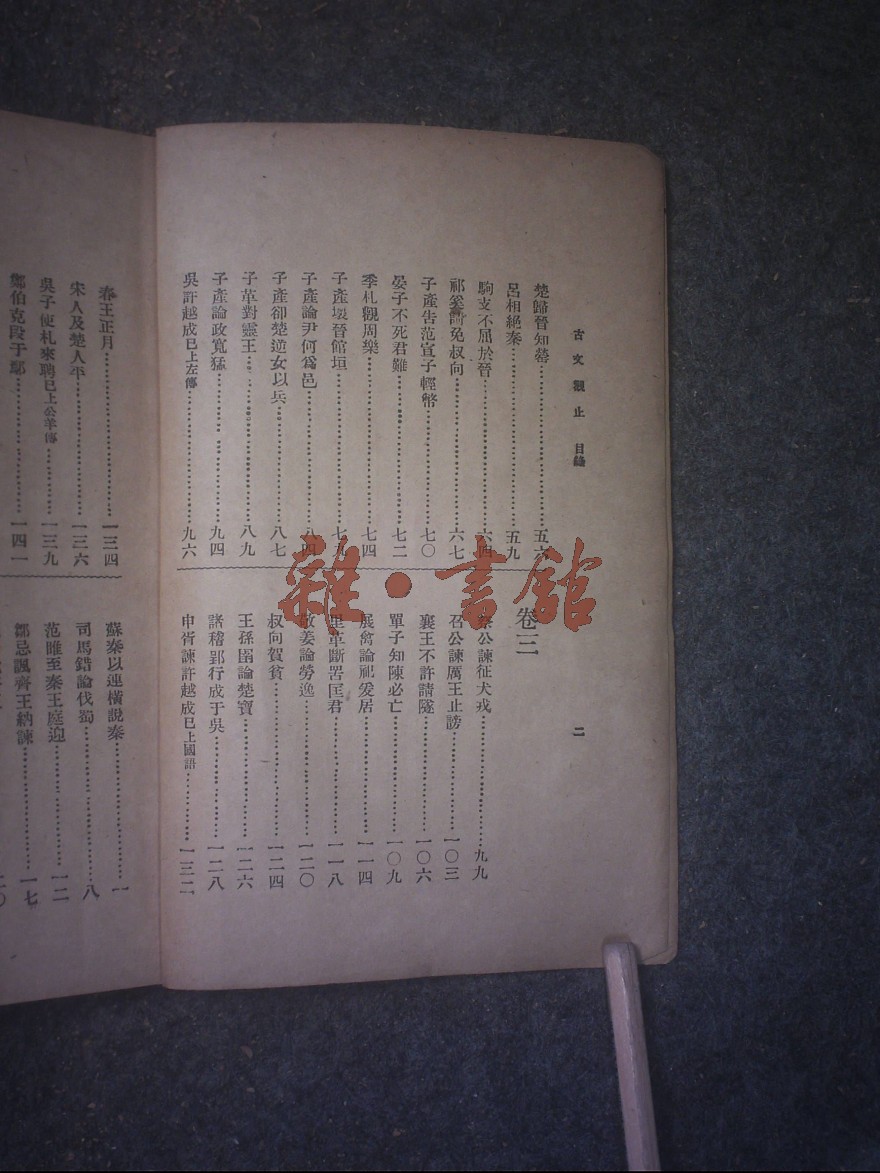 古文觀止 目錄 二
楚歸晉知罃……五六
呂相絕秦……五九
駒支不屈於晉……六四
祁奚請免叔向……六七
子產告范宣子輕幣……七〇
晏子不死君難……七二
季札觀周樂……七四
子產壞晉館垣……七九
子產論尹何爲邑……八四
子產卻楚逆女以兵……八七
子革對靈王……八九
子產論政寬猛……九四
吳許越成已上左傳……九六
卷三
祭公諫征犬戎……九九
召公諫厲王止謗……一〇三
襄王不許請隧……一〇六
單子知陳必亡……一〇九
展禽論祀爰居……一一四
里革斷罟匡君……一一八
敬姜論勞逸……一二〇
叔向賀貧……一二四
王孫圉論楚寶……一二六
諸稽郢行成于吳……一二八
申胥諫許越成已上國語……一三二
春王正月……一三四
宋人及楚人平……一三六
吳子使札來聘已上公羊傳……一三九
鄭伯克段于鄢……一四一
蘇秦以連橫說秦……一
司馬錯論伐蜀……八
范睢至秦王庭迎……一二
鄒忌諷齊王納諫……一七
雜·書館